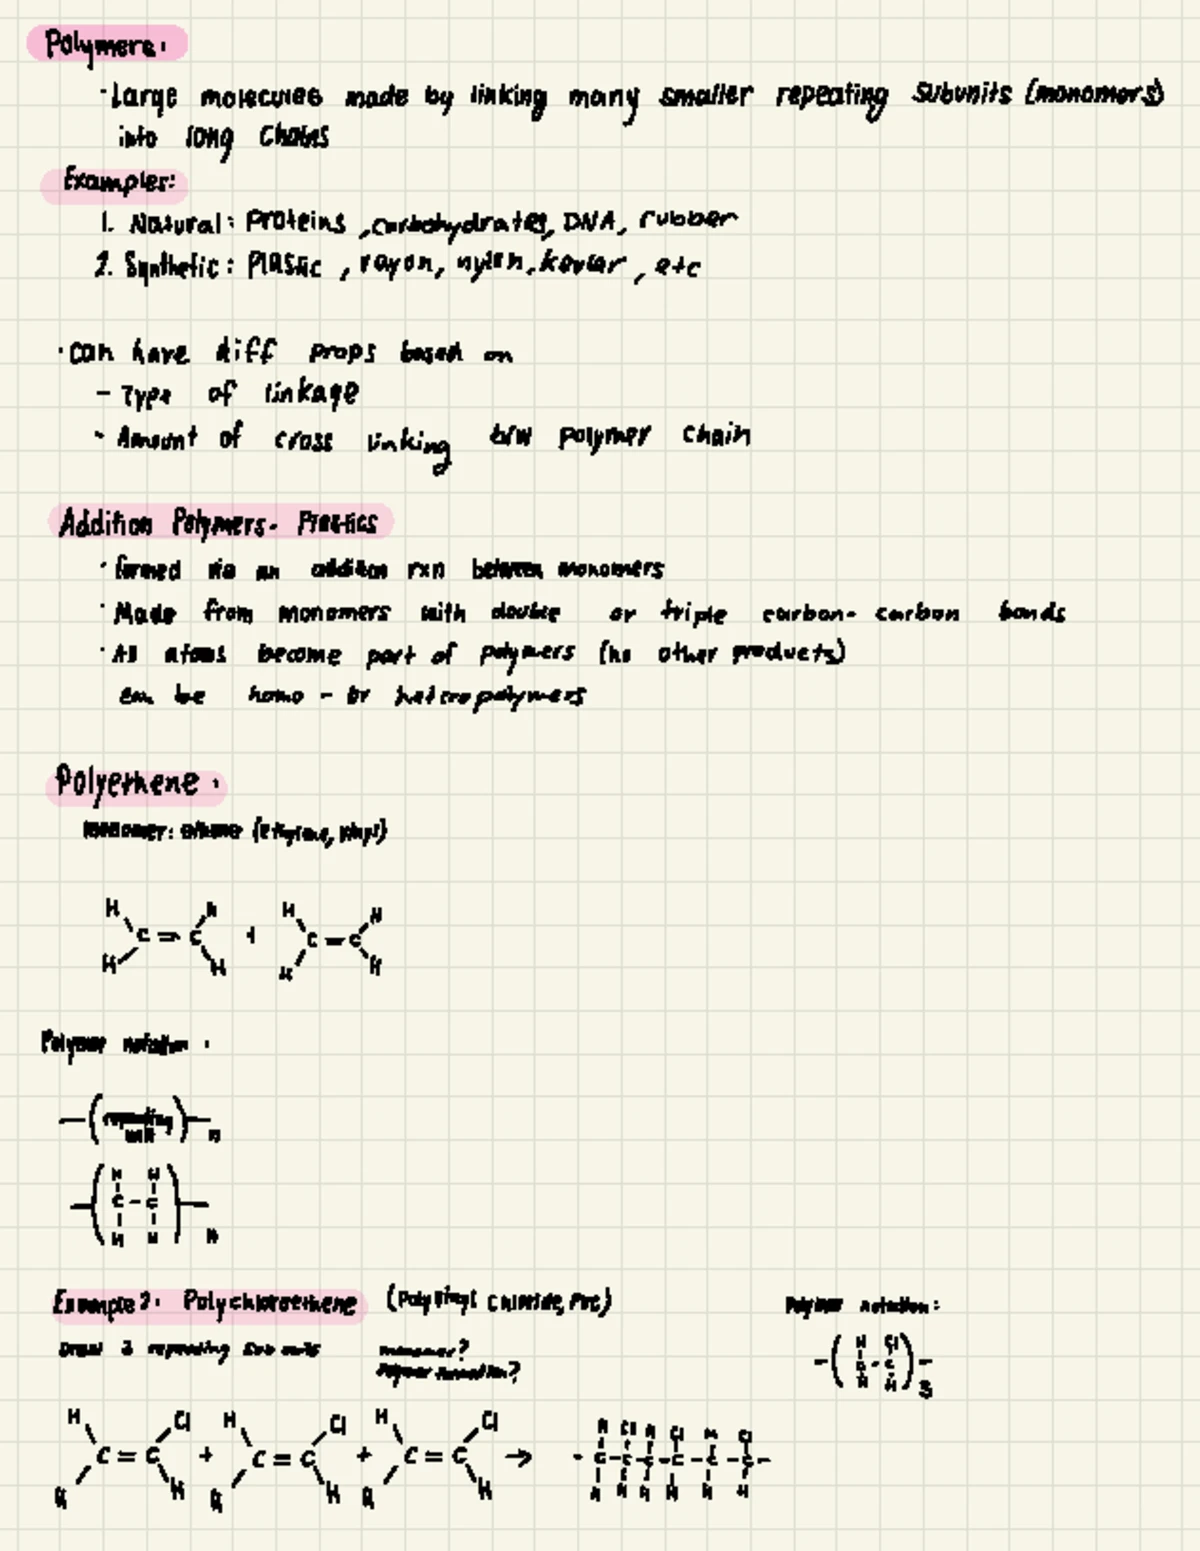 Polymers:
· Large molecules made by linking many smaller repeating subunits (monomers)
into long chains
Examples:
1. Natural: Proteins, carbohydrates, DNA, rubber
2. Synthetic: Plastic, rayon, nylon, kevlar, etc
· can have diff props based on
- Type of linkage
- Amount of cross linking b/w polymer chain
Addition Polymers - Plastics
· formed via an addition rxn between monomers
· Made from monomers with double or triple carbon-carbon bonds
· All atoms become part of polymers (no other products)
can be homo - or heteropolymers
Polyethene:
monomer: ethene (ethylene,
H H H H
C = C + C = C
H H H H
Polymer notation:
-( repeating unit )- n
H H
-( C - C )-
H H n
Example 2: Polychloroethene (Polyvinyl chloride, PVC) Polymer notation:
Draw 3 repeating sub units monomer?
Polymer notation?
H Cl
-( C - C )-
H H 3
H Cl H Cl H Cl H Cl H Cl H Cl
C = C + C = C + C = C → - C - C - C - C - C - C -
H H H H H H H H H H H H